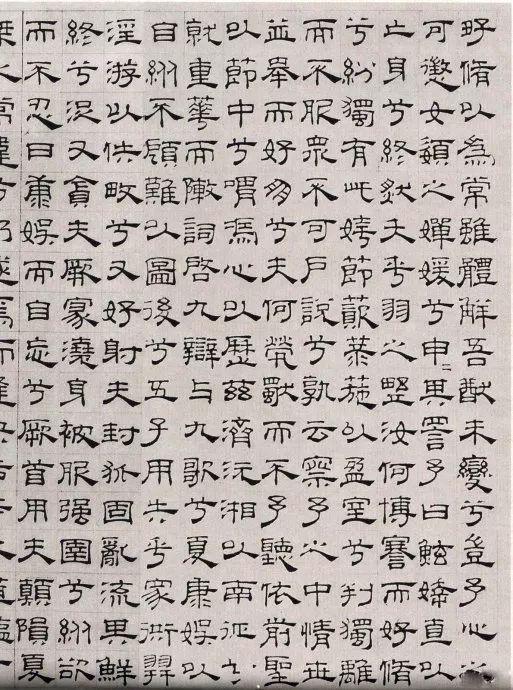 好脩以為常雖體解吾猶未變兮豈予心之
可懲女嬃之嬋媛兮申〻其詈予曰鮌婞直以
亡身兮終然夭乎羽之壄汝何博謇而好脩
兮紛獨有此姱節薋菉葹以盈室兮判獨離
而不服眾不可戶說兮孰云察予之中情世
並舉而好朋兮夫何煢獨而不予聽依前聖
以節中兮喟馮心以歷茲濟沅湘以南征兮
就重華而敶詞啓九辯与九歌兮夏康娛以
自縱不顧難以圖後兮五子用失乎家衖羿
淫游以佚畋兮又好射夫封狐固亂流其鮮
終兮浞又貪夫厥家澆身被服强圉兮縱欲
而不忍日康娛而自忘兮厥首用夫顛隕夏
桀之常違兮乃遂焉而逢